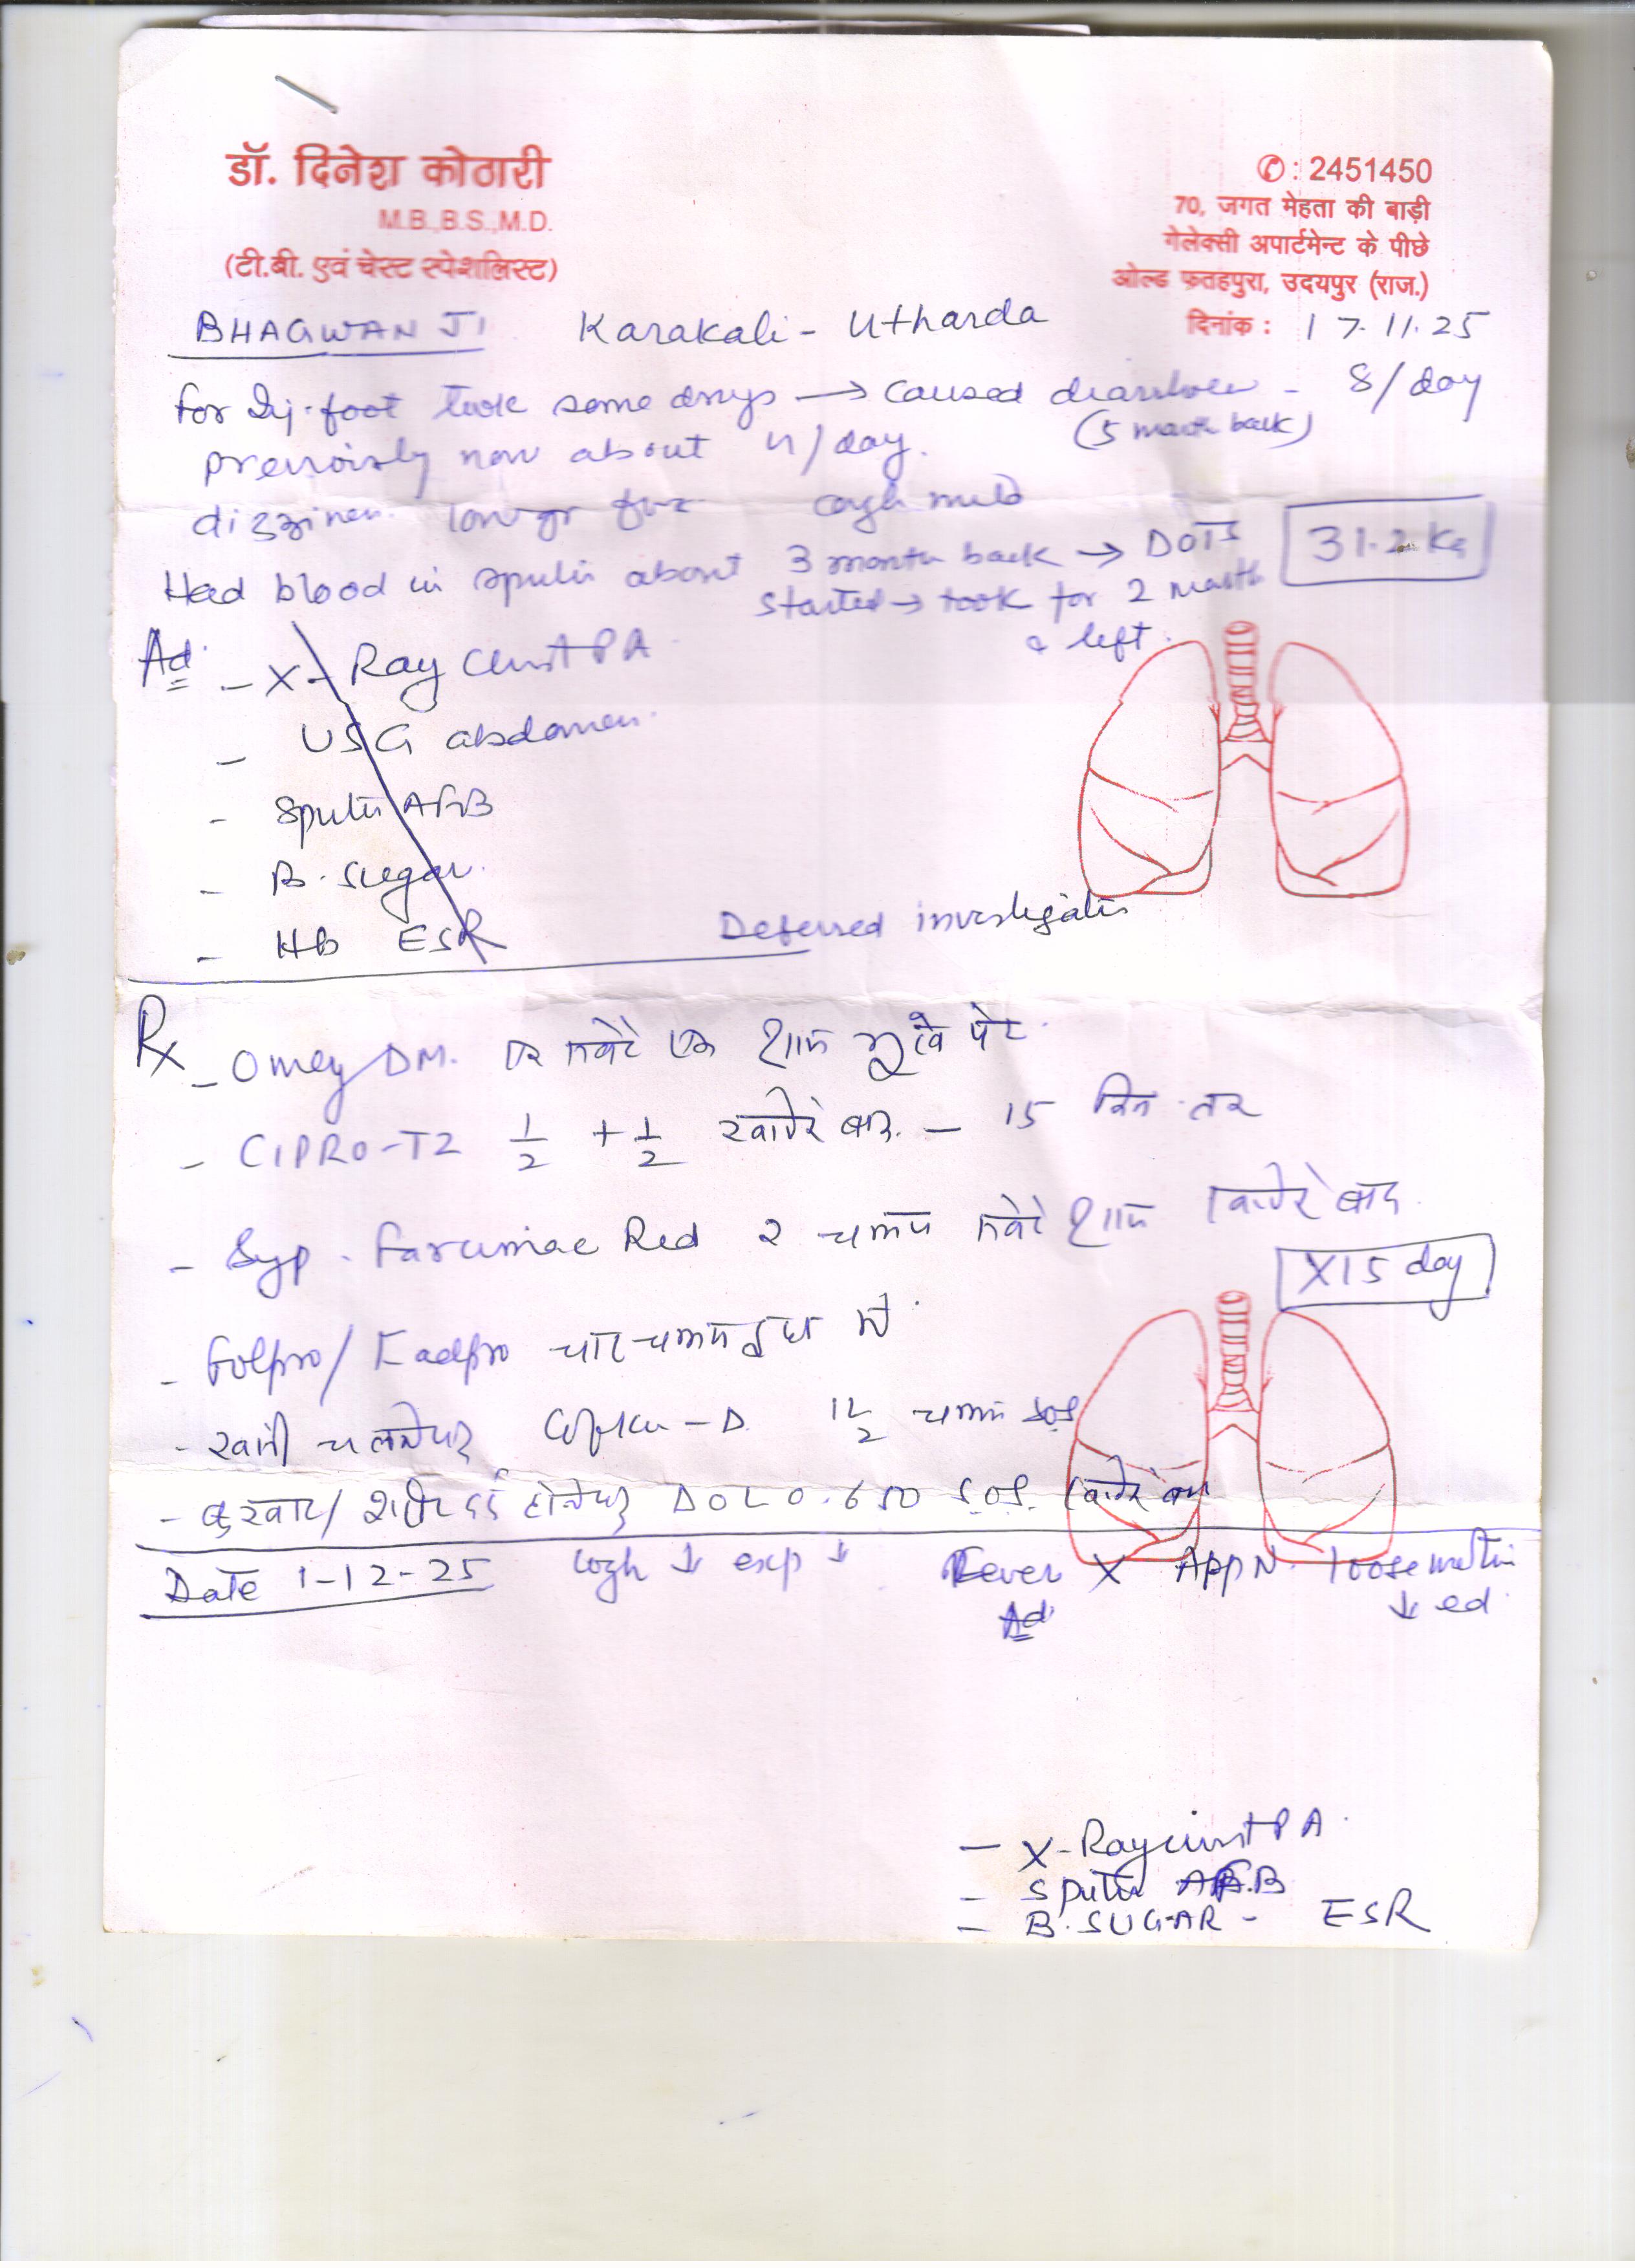 डॉ. दिनेश कोठारी
M.B.,B.S.,M.D.
(टी.बी. एवं चेस्ट स्पेशलिस्ट)
✆ : 2451450
70, जगत मेहता की बाड़ी
गेलेक्सी अपार्टमेन्ट के पीछे
ओल्ड फतहपुरा, उदयपुर (राज.)
दिनांक : 17.11.25
BHAGWAN JI Karakali - Utharda
for Inj. foot took some drugs → caused diarrhoea - 8/day
previously now about 4/day. (5 month back)
dizziness low gr cough mild
Had blood in sputum about 3 month back → DOTS 31.2 Kg
started → took for 2 month
& left.
Ad.
- X-Ray Chest PA
- USG abdomen
- Sputum AFB
- B. Sugar
- Hb ESR
Deferred investigation
Rx
- Omez DM. एक सवेरे एक शाम भूखे पेट
- CIPRO-TZ 1/2 + 1/2 खाने के बाद - 15 दिन तक
- Syp. Red 2 चम्मच सवेरे शाम खाने के बाद
X15 day
- चार चम्मच दूध में
- खांसी चलने पर -D 1 1/2 चम्मच SOS
- बुखार/शरीर दर्द होने पर DOLO.650 S.O.S. खाने के बाद
Date 1-12-25 cough ↓ exp ↓ Fever X App N. loose motion
↓ed
Ad.
- X-Ray chest PA
- Sputum AFB
- B. SUGAR - ESR